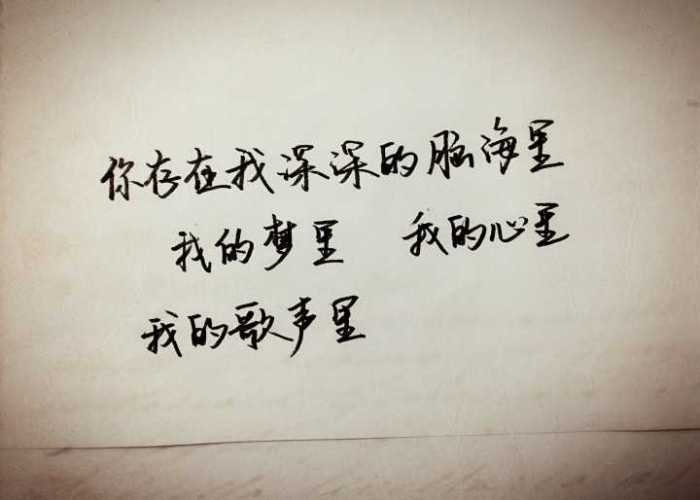 你存在我深深的脑海里
我的梦里 我的心里
我的歌声里